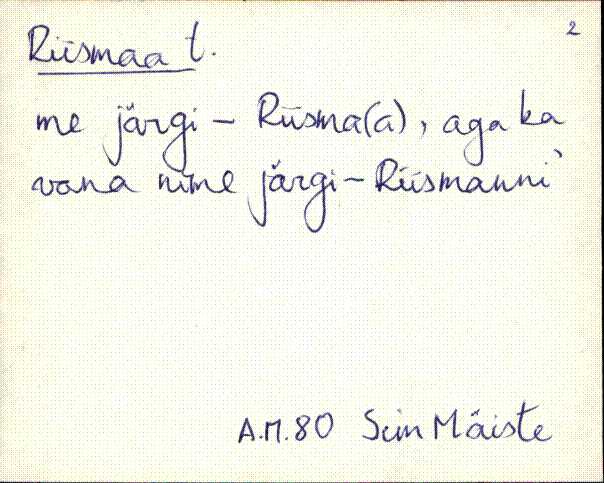 2
Riismaa t.
me järgi – Riisma(a), aga ka
vana nime järgi – Riismanni
A.M.80 Siim Mäiste